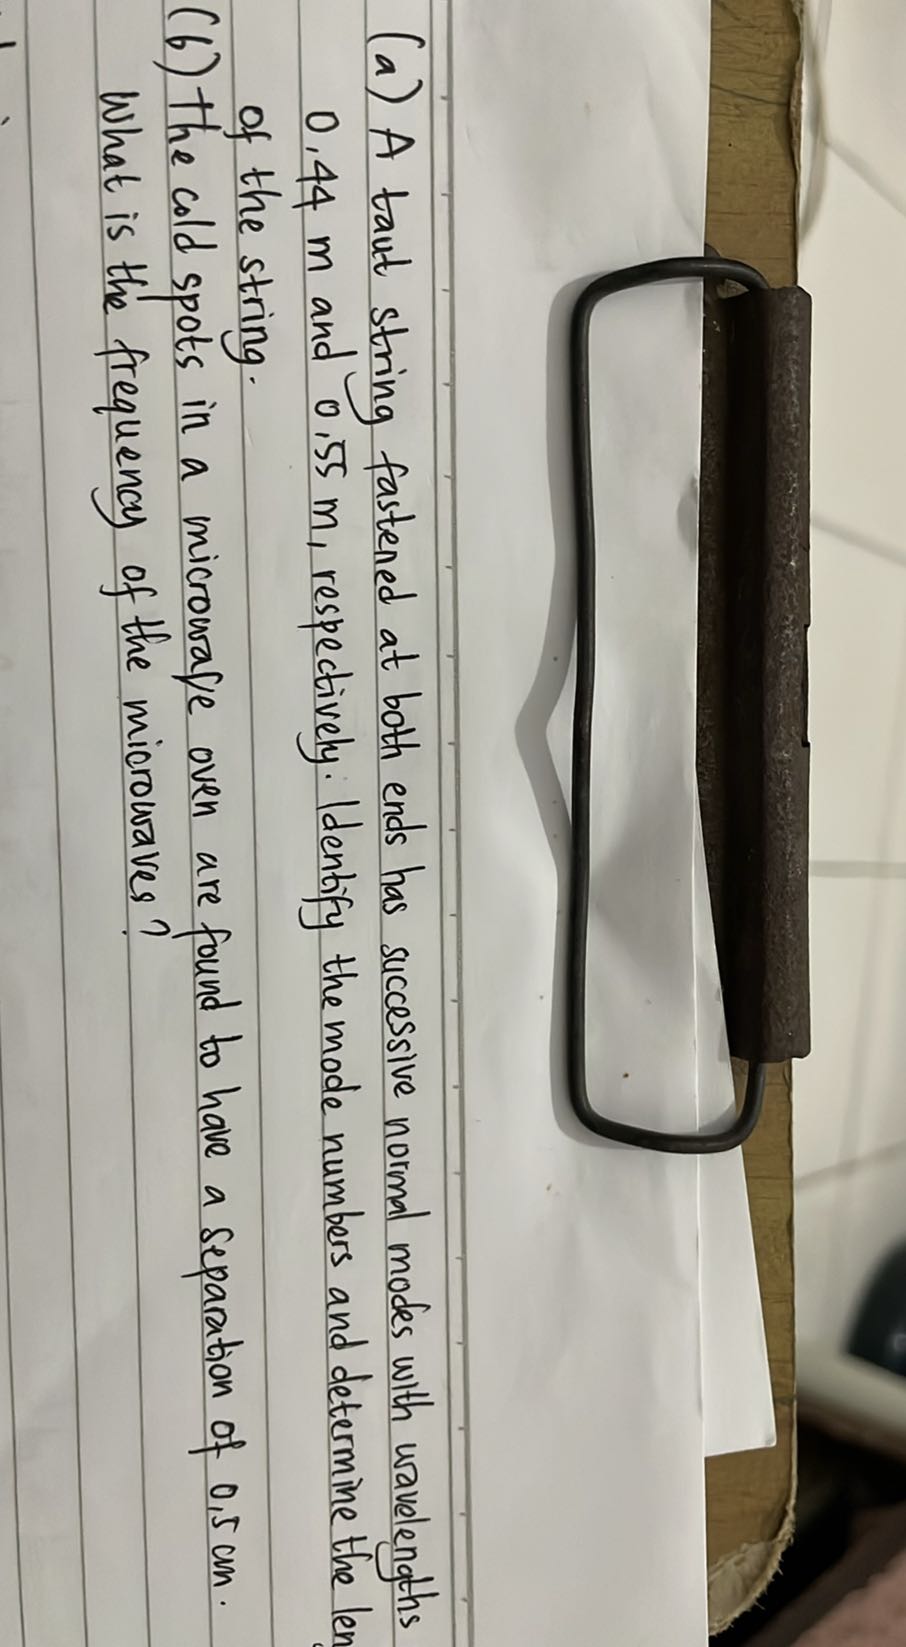 (a) A taut string fastened at both ends has successive normal modes with wavelengths
0,44 m and 0,55 m, respectively. Identify the mode numbers and determine the len
of the string.
(b) The cold spots in a microwave oven are found to have a separation of 0,5 cm.
What is the frequency of the microwaves?